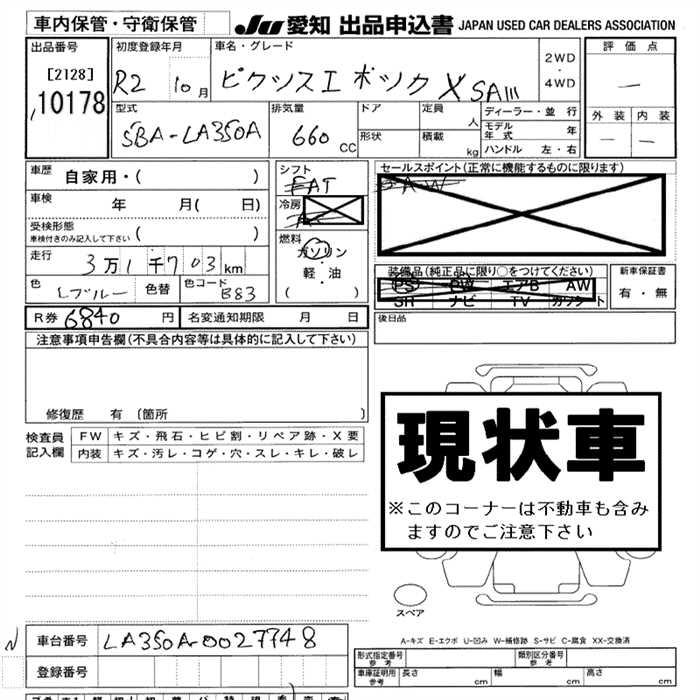 車内保管・守衛保管
JU 愛知 出品申込書 JAPAN USED CAR DEALERS ASSOCIATION
出品番号 初度登録年月 車名・グレード 2WD・4WD 評価点
[2128] R2 10月 ピクシスエポック X SAⅢ —
10178
型式 排気量 ドア 定員 人 ディーラー・並行 外装 内装
5BA-LA350A 660 CC 形状 積載 kg モデル年式 年 — —
ハンドル 左・右
車歴 自家用・( ) シフト セールスポイント(正常に機能するものに限ります)
FAT A-W
車検 年 月( 日) 冷房
受検形態 車検付きのみ記入して下さい ( ) 燃料
ガソリン・軽・油
( )
走行 3万1千703km 装備品(純正品に限り○をつけてください) 新車保証書
PS PW エアB AW 有・無
SH ナビ TV カセット
色 Lブルー 色替 色コード B83
R券 6840 円 名変通知期限 月 日 後日品
注意事項申告欄(不具合内容等は具体的に記入して下さい)
修復歴 有 〔箇所 〕
検査員記入欄 FW キズ・飛石・ヒビ割・リペア跡・X要
内装 キズ・汚レ・コゲ・穴・スレ・キレ・破レ
現状車
※このコーナーは不動車も含みますのでご注意下さい
スペア
A-キズ E-エクボ U-凹み W-補修跡 S-サビ C-腐食 XX-交換済
N 車台番号 LA350A-0027748
登録番号
形式指定番号 参考 類別区分番号 参考
車庫証明用 参考 長さ cm 幅 cm 高さ cm